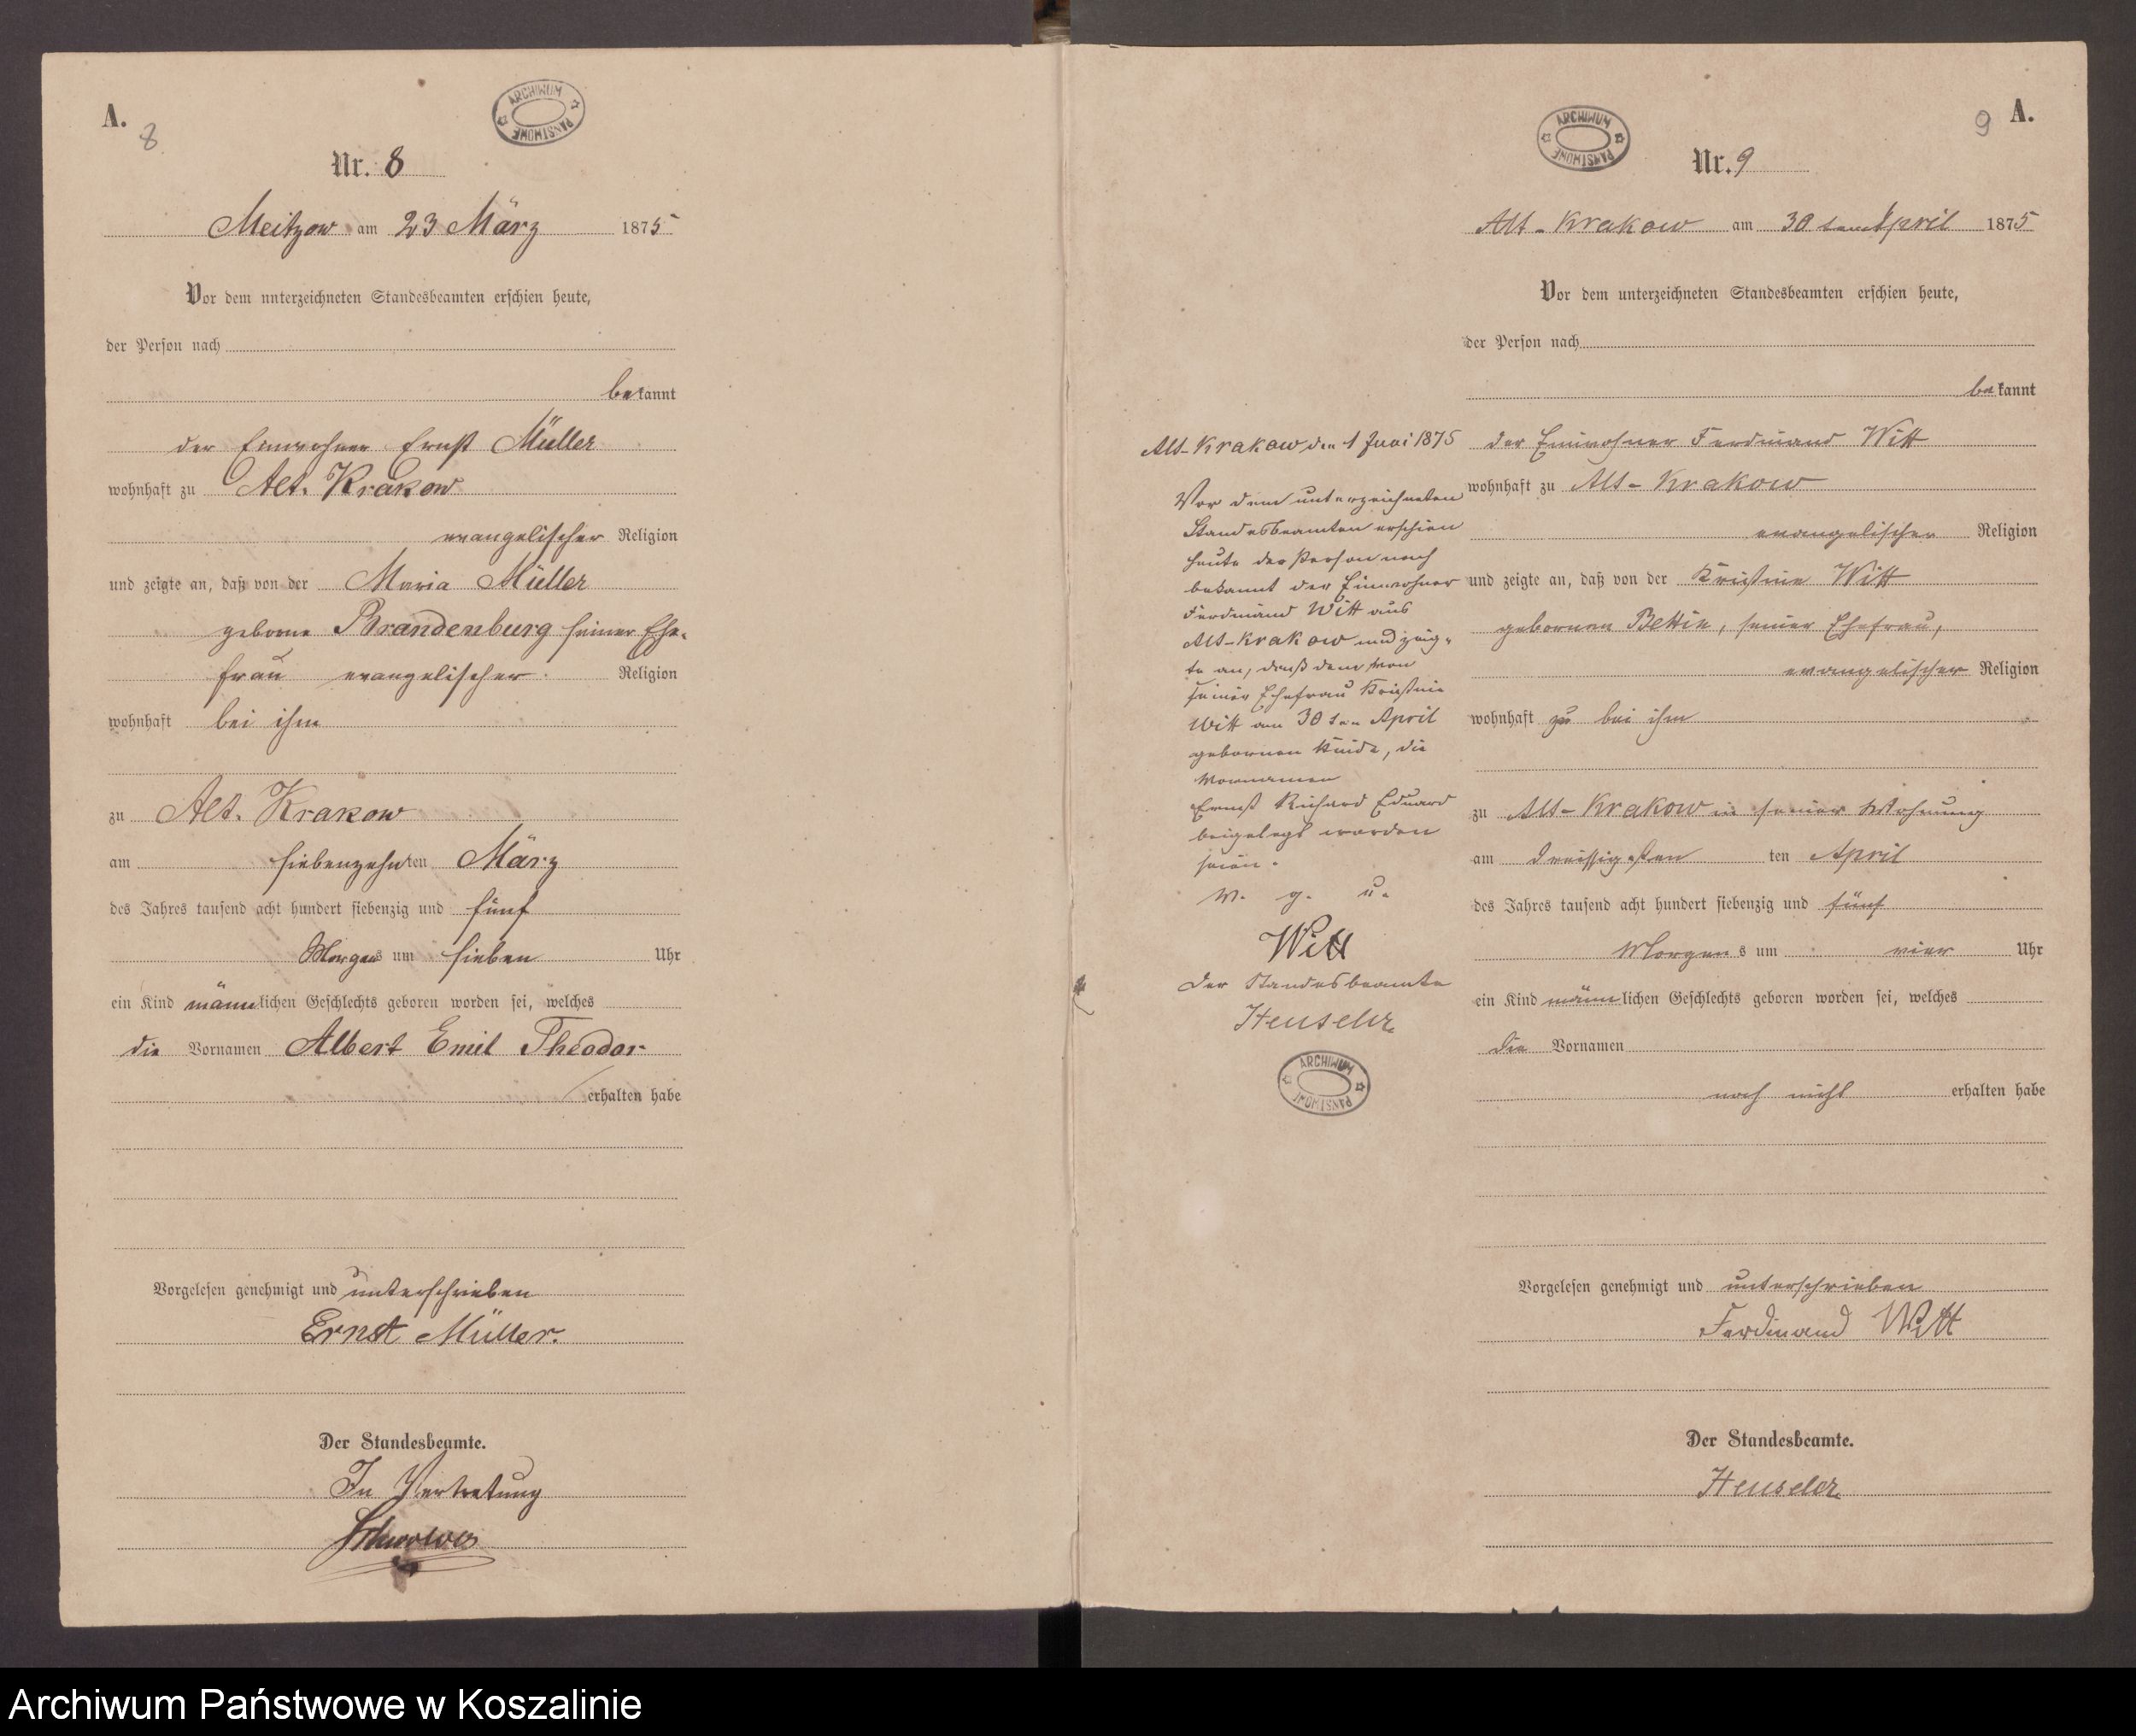 A.
8
ARCHIWUM PAŃSTWOWE
Nr. 8
Meitzow am 23 März 1875
Vor dem unterzeichneten Standesbeamten erschien heute,
der Person nach
bekannt
der Einwohner Ernst Müller
wohnhaft zu Alt. Krakow
evangelischer Religion
und zeigte an, daß von der Maria Müller
geborne Brandenburg seiner Ehe-
frau evangelischer Religion
wohnhaft bei ihm
zu Alt. Krakow
am siebenzehnten März
des Jahres tausend acht hundert siebenzig und fünf
Morgens um sieben Uhr
ein Kind männlichen Geschlechts geboren worden sei, welches
die Vornamen Albert Emil Theodor
erhalten habe
Vorgelesen genehmigt und unterschrieben
Ernst Müller.
Der Standesbeamte.
In Vertretung
9 A.
ARCHIWUM PAŃSTWOWE
Nr. 9
Alt-Krakow am 30 ten April 1875
Vor dem unterzeichneten Standesbeamten erschien heute,
der Person nach
bekannt
der Einwohner Ferdinand Witt
wohnhaft zu Alt-Krakow
evangelischer Religion
und zeigte an, daß von der Kristine Witt
gebornen Bettin, seiner Ehefrau,
evangelischer Religion
wohnhaft zu bei ihm
zu Alt-Krakow in seiner Wohnung
am dreissigsten ten April
des Jahres tausend acht hundert siebenzig und fünf
Morgens um vier Uhr
ein Kind männlichen Geschlechts geboren worden sei, welches
die Vornamen
noch nicht erhalten habe
Vorgelesen genehmigt und unterschrieben
Ferdinand Witt
Der Standesbeamte.
Henseler
Alt-Krakow den 1 Juni 1875
Vor dem unterzeichneten
Standesbeamten erschien
heute der Person nach
bekannt der Einwohner
Ferdinand Witt aus
Alt-Krakow und zeig-
te an, daß dem von
seiner Ehefrau Kristine
Witt am 30 ten April
gebornen Kinde, die
Vornamen
Ernst Richard Eduard
beigelegt worden
seien.
v. g. u.
Witt
Der Standesbeamte
Henseler
ARCHIWUM PAŃSTWOWE
Archiwum Państwowe w Koszalinie